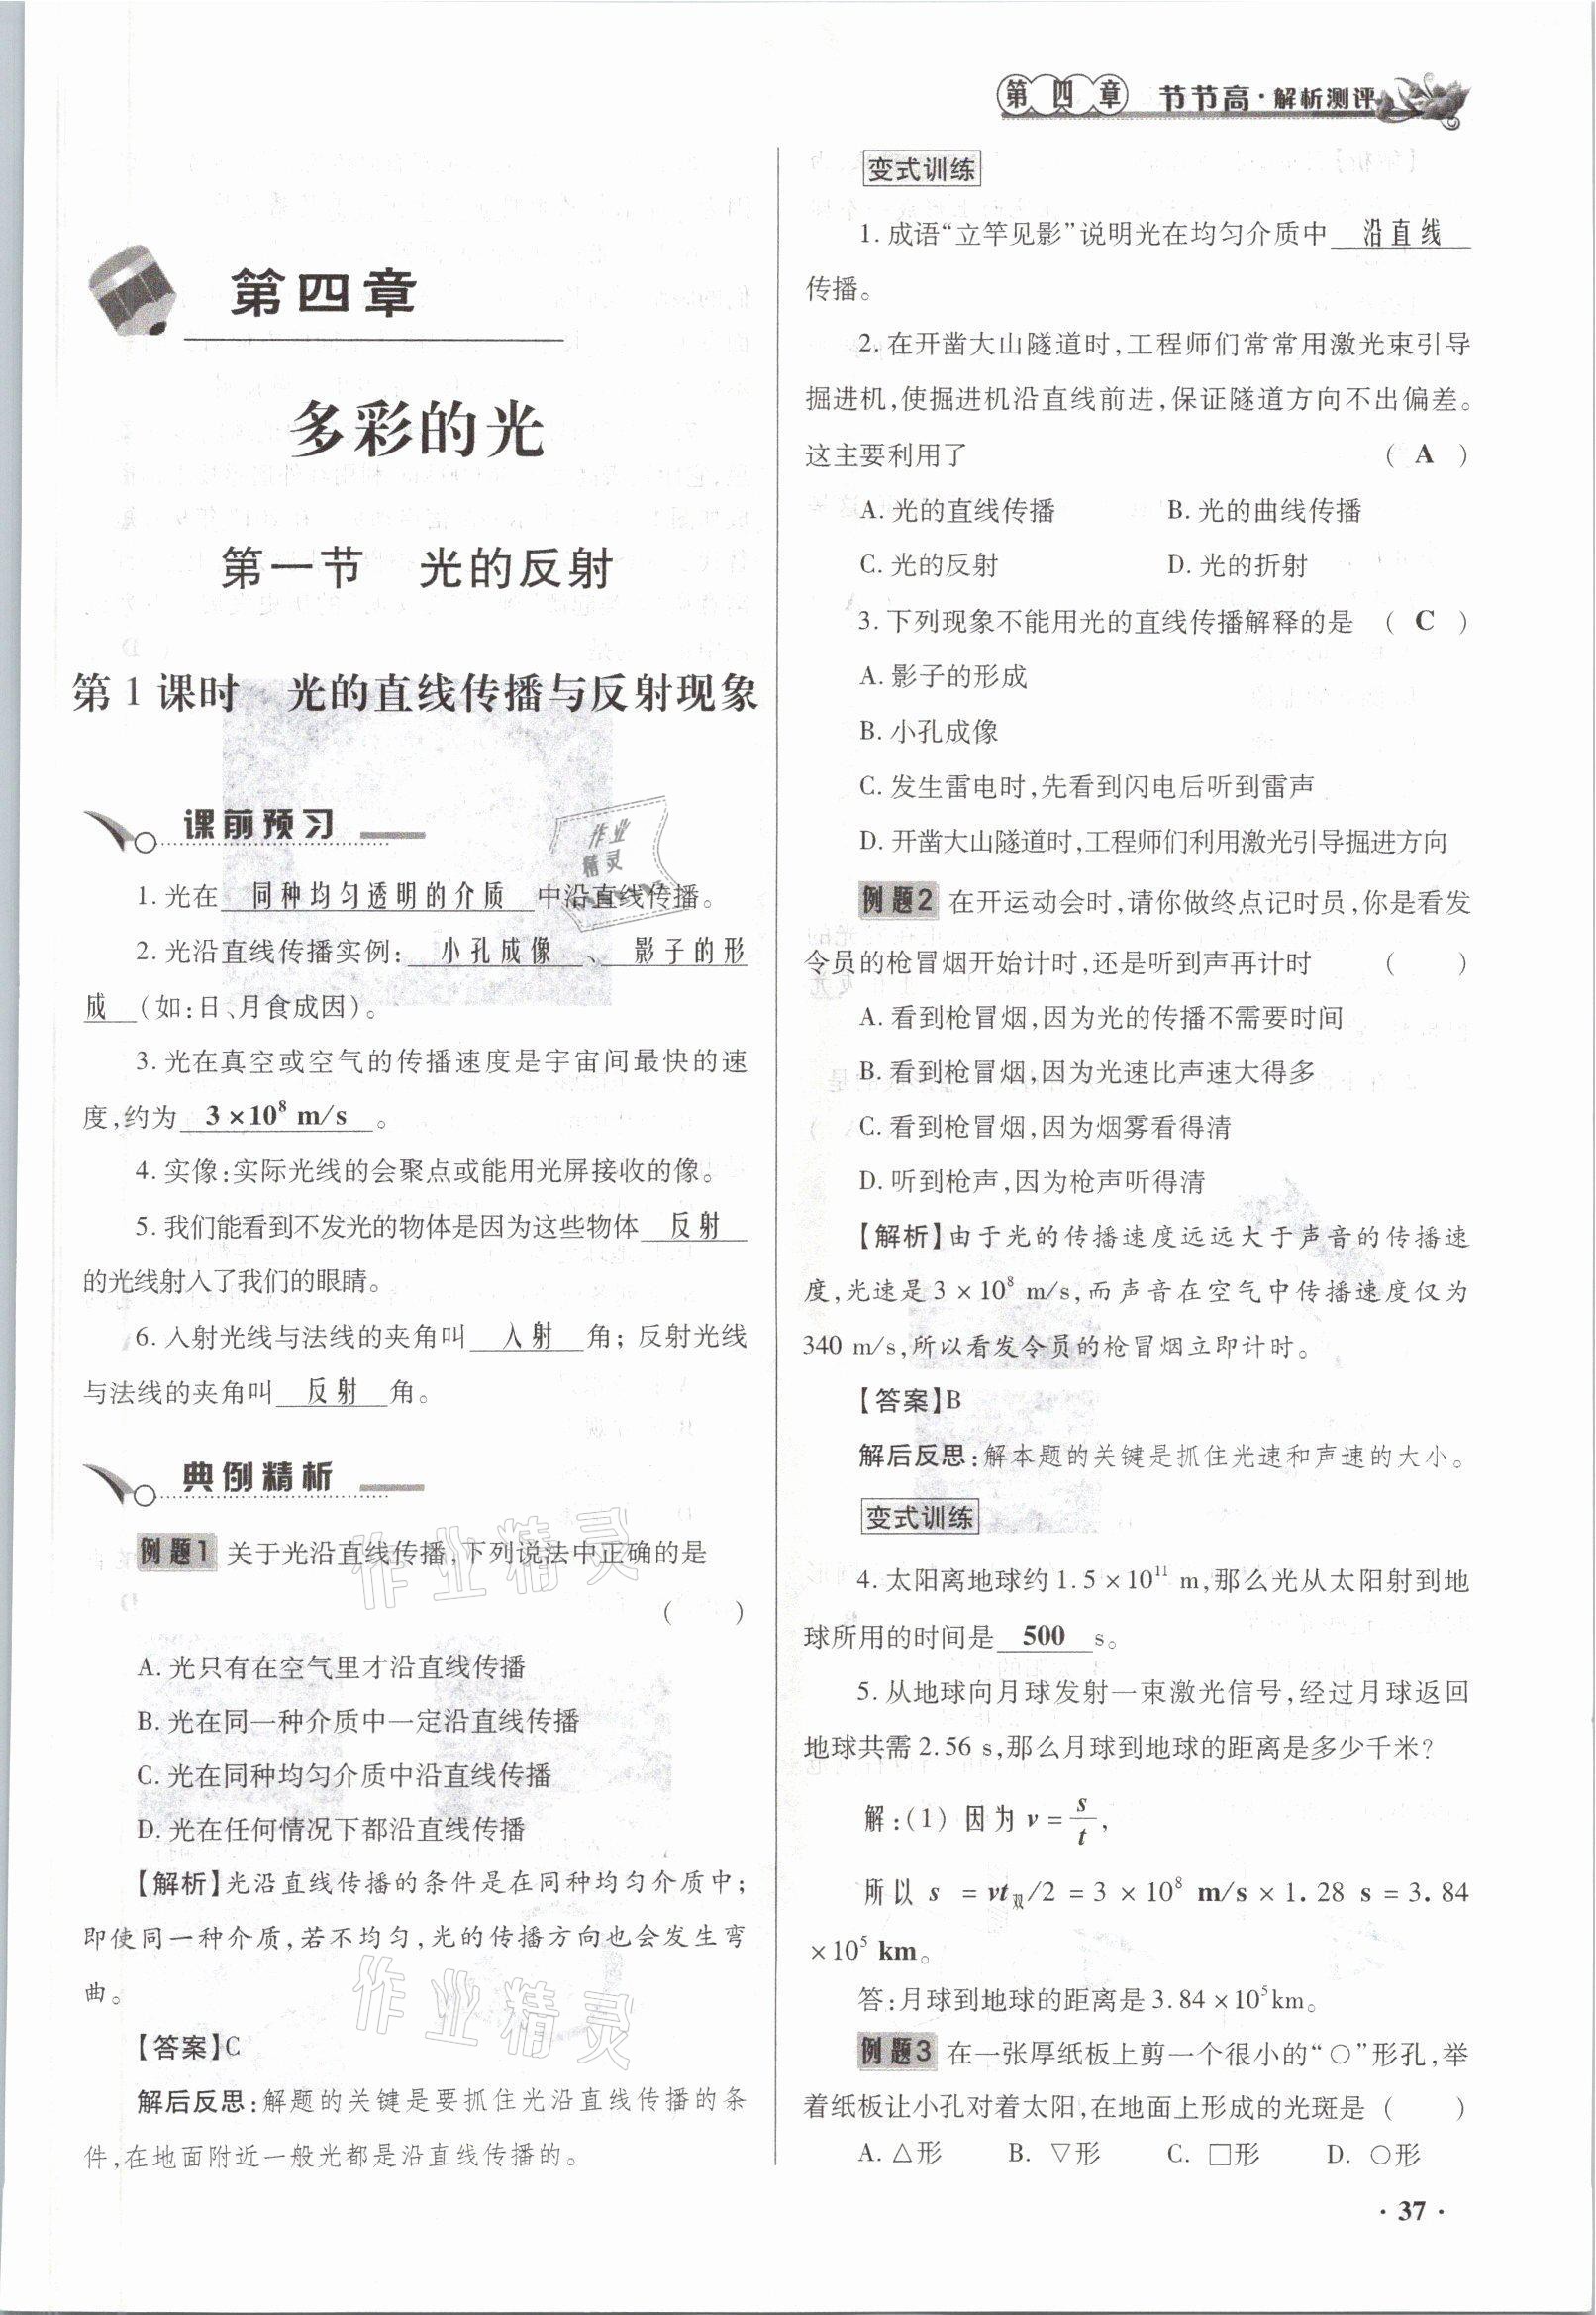 第四章 节节高·解析测评
第四章
多彩的光
第一节 光的反射
第1课时 光的直线传播与反射现象
课前预习
1. 光在 同种均匀透明的介质 中沿直线传播。
2. 光沿直线传播实例: 小孔成像 、 影子的形
成 (如:日、月食成因)。
3. 光在真空或空气的传播速度是宇宙间最快的速
度,约为 3×10⁸ m/s 。
4. 实像:实际光线的会聚点或能用光屏接收的像。
5. 我们能看到不发光的物体是因为这些物体 反射
的光线射入了我们的眼睛。
6. 入射光线与法线的夹角叫 入射 角; 反射光线
与法线的夹角叫 反射 角。
典例精析
例题1 关于光沿直线传播,下列说法中正确的是
( )
A. 光只有在空气里才沿直线传播
B. 光在同一种介质中一定沿直线传播
C. 光在同种均匀介质中沿直线传播
D. 光在任何情况下都沿直线传播
【解析】光沿直线传播的条件是在同种均匀介质中;
即使同一种介质,若不均匀,光的传播方向也会发生弯
曲。
【答案】C
解后反思:解题的关键是要抓住光沿直线传播的条
件,在地面附近一般光都是沿直线传播的。
变式训练
1. 成语“立竿见影”说明光在均匀介质中 沿直线
传播。
2. 在开凿大山隧道时,工程师们常常用激光束引导
掘进机,使掘进机沿直线前进,保证隧道方向不出偏差。
这主要利用了 ( A )
A. 光的直线传播 B. 光的曲线传播
C. 光的反射 D. 光的折射
3. 下列现象不能用光的直线传播解释的是 ( C )
A. 影子的形成
B. 小孔成像
C. 发生雷电时,先看到闪电后听到雷声
D. 开凿大山隧道时,工程师们利用激光引导掘进方向
例题2 在开运动会时,请你做终点记时员,你是看发
令员的枪冒烟开始计时,还是听到声再计时 ( )
A. 看到枪冒烟,因为光的传播不需要时间
B. 看到枪冒烟,因为光速比声速大得多
C. 看到枪冒烟,因为烟雾看得清
D. 听到枪声,因为枪声听得清
【解析】由于光的传播速度远远大于声音的传播速
度,光速是 3×10⁸ m/s,而声音在空气中传播速度仅为
340 m/s,所以看发令员的枪冒烟立即计时。
【答案】B
解后反思:解本题的关键是抓住光速和声速的大小。
变式训练
4. 太阳离地球约 1.5×10¹¹ m,那么光从太阳射到地
球所用的时间是 500 s。
5. 从地球向月球发射一束激光信号,经过月球返回
地球共需 2.56 s,那么月球到地球的距离是多少千米?
解:(1) 因为 v=s/t,
所以 s =vt双/2=3×10⁸ m/s×1.28 s=3.84
×10⁵ km。
答:月球到地球的距离是 3.84×10⁵km。
例题3 在一张厚纸板上剪一个很小的“○”形孔,举
着纸板让小孔对着太阳,在地面上形成的光斑是 ( )
A. △形 B. ▽形 C. □形 D. ○形
· 37 ·
作业精灵
作业精灵
作业精灵